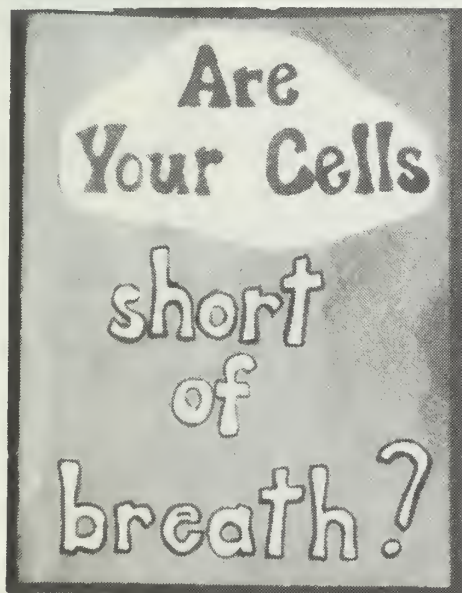 Are
Your Cells
short
of
breath?